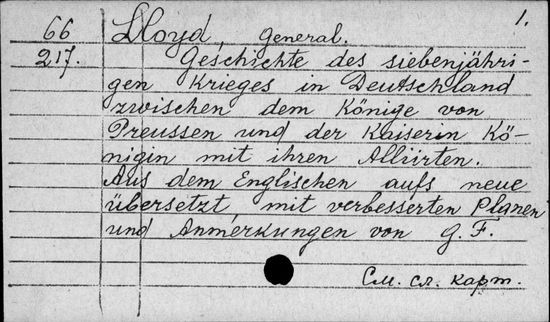 1.
66 Lloyd, General.
217. Geschichte des siebenjähri-
gen Krieges in Deutschland
zwischen dem Könige von
Preussen und der Kaiserin Kö-
nigin mit ihren Alliirten.
Aus dem Englischen aufs neue
übersetzt mit verbesserten Planen
und Anmerkungen von G. F.
См. сл. карт.